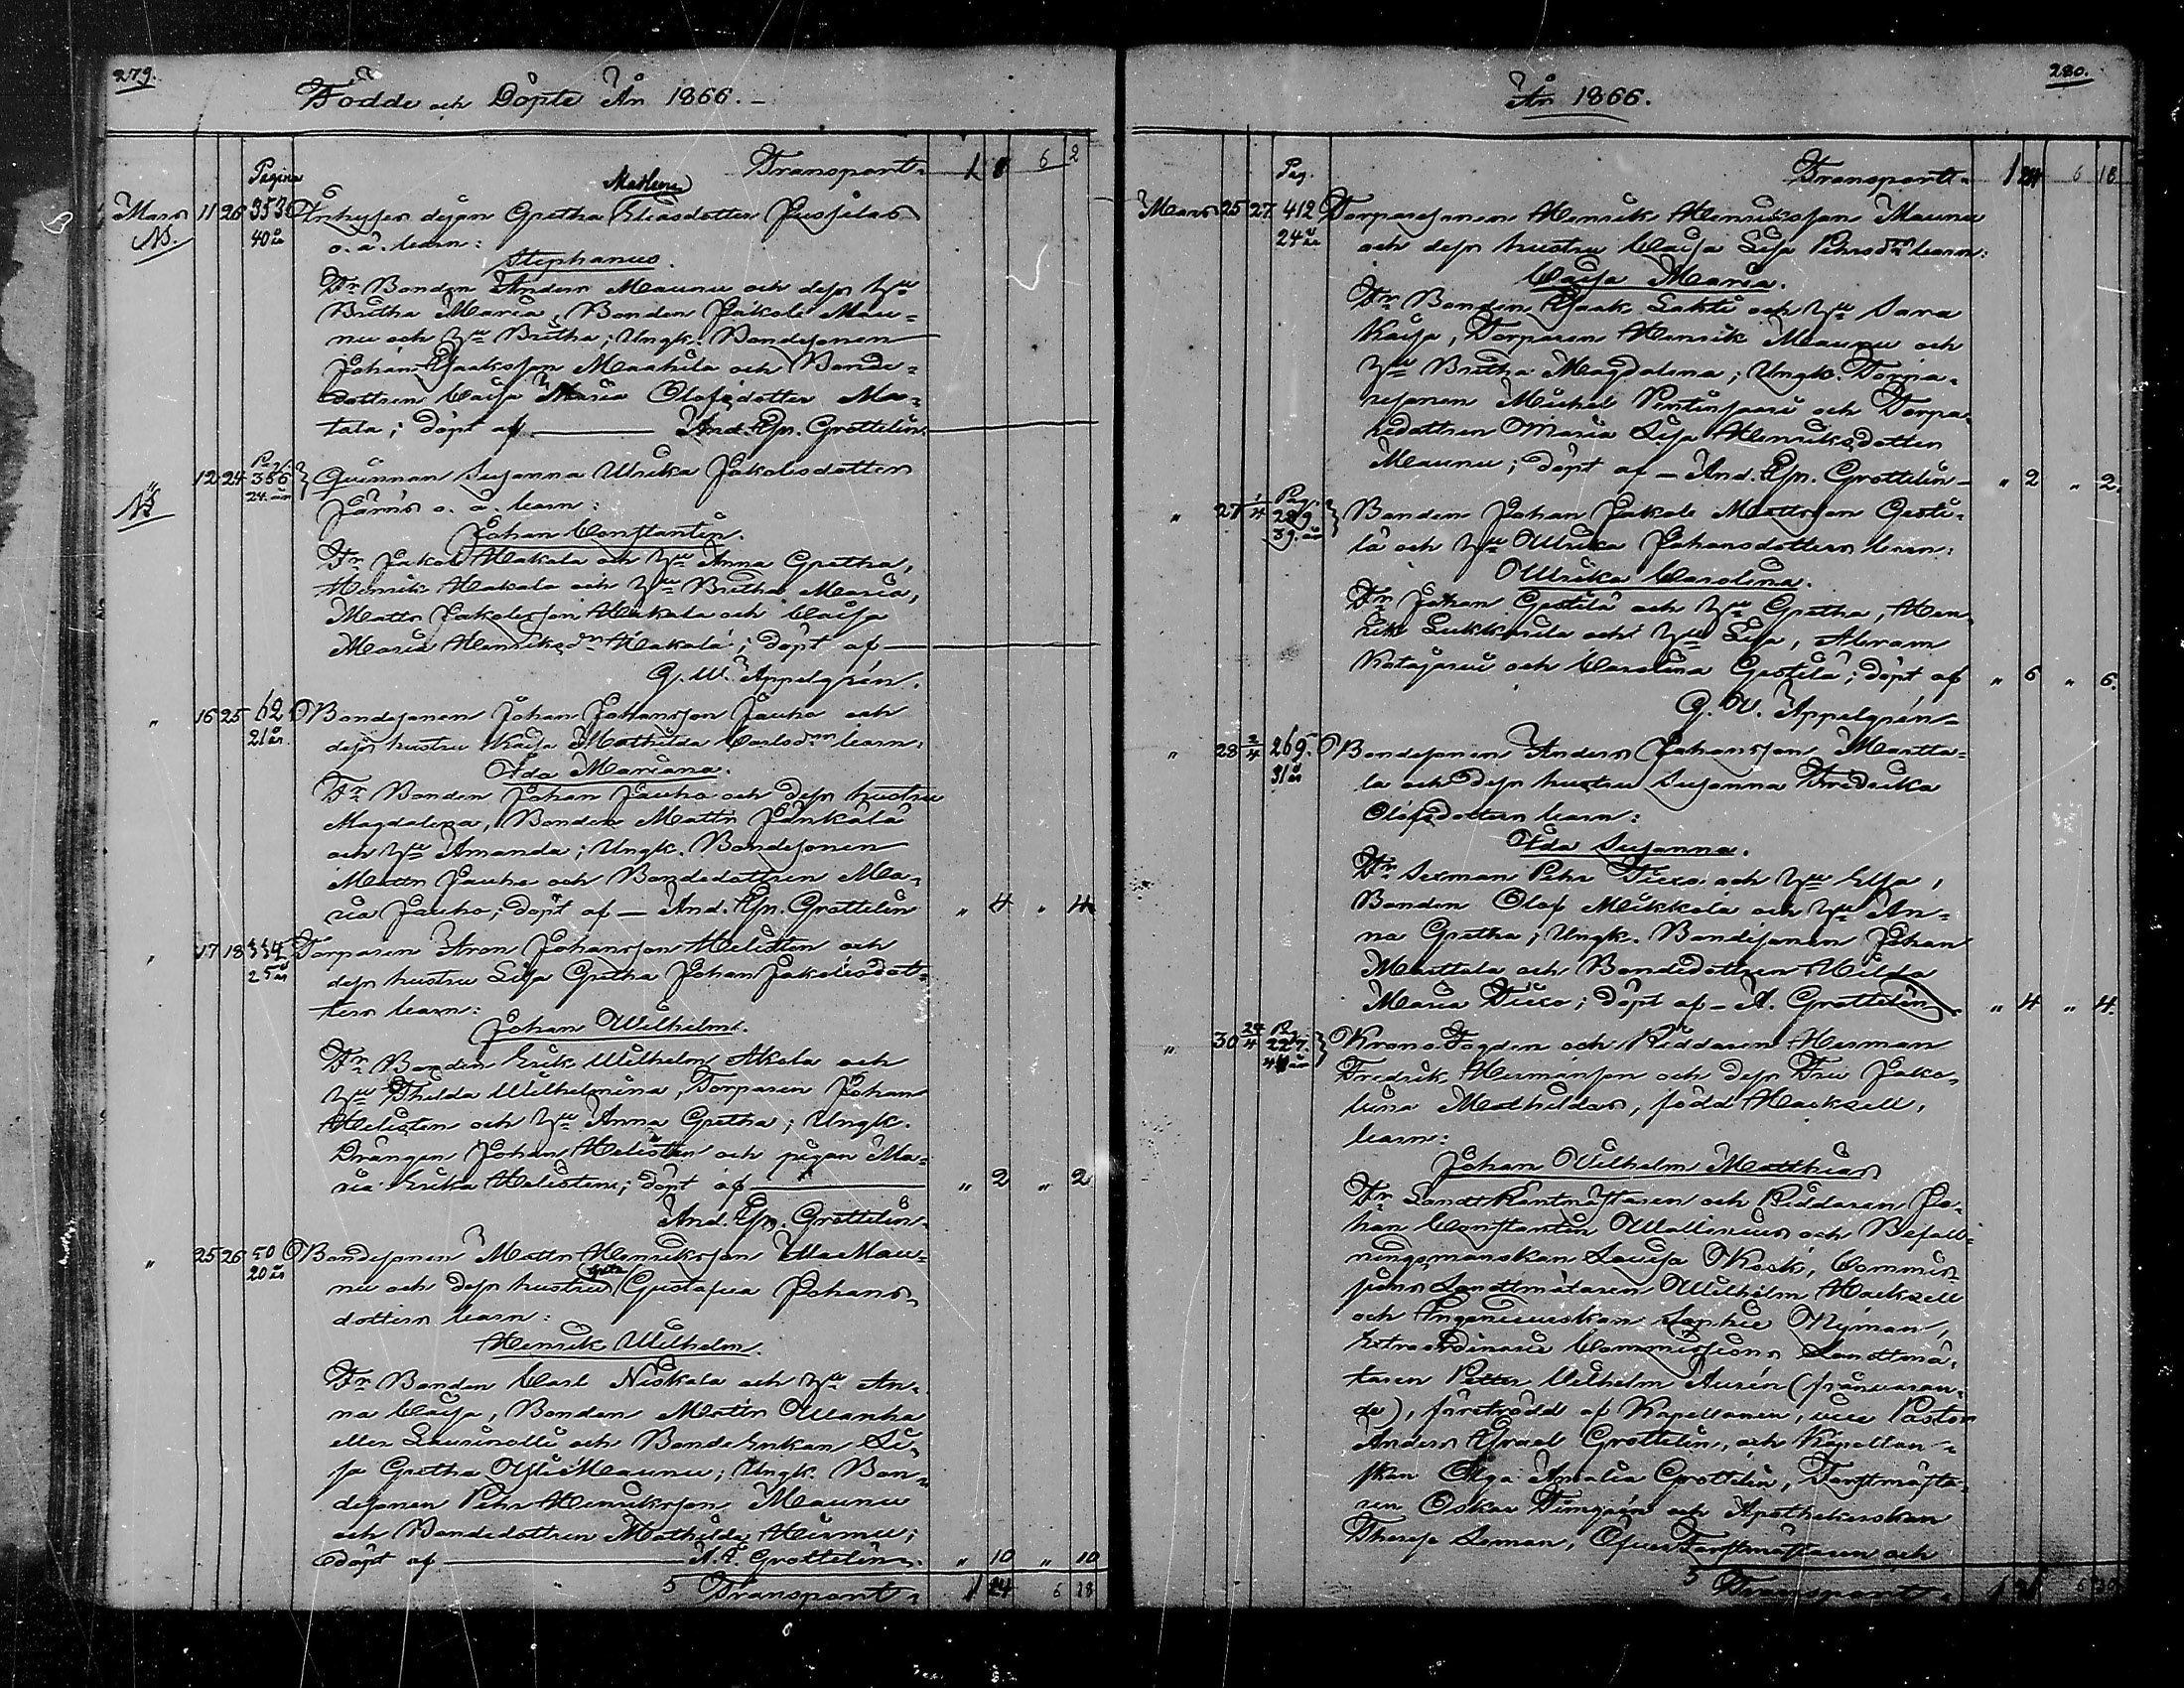 279.
Födde och Döpte År 1866.
Pagina Transport. 1 8 6 2
Mars 11 26 353 Inhyses Enkan Gretha Madlena Eliasdotter
NB. 40 år o. ä. barn:
Stephanus.
Fr Bonden Anders Maunu och dess Hu
Britha Maria, Bonden Jakob Mau-
nu och Hu Britha; Ungk. Bondesonen
Johan Isaksson Markula och Bonde-
dottren Caisa Maria Olofsdotter Ma-
tala; döpt af And. Isr. Grottelin.
" 12 24 Pag. 366 Qvinnan Susanna Ulrika Jakobsdotter
NB 24 år Järvis o. ä. barn:
Johan Constantin.
Fr Jakob Hakala och Hu Anna Gretha,
Henrik Hakala och Hu Britha Maria,
Matts Jakobsson Hakala och Caisa
Maria Henriksdr Hakala; döpt af
G. W. Appelgrén.
" 16 25 62 Bondesonen Johan Johansson Jauho och
21 år. dess hustru Kaisa Mathilda Carlsdtrs barn:
Ida Mariana.
Fr Bonden Johan Jauho och dess hustru
Magdalena, Bonden Matts Jänkälä
och Hu Amanda; Ungk. Bondesonen
Matts Jauho och Bondedottren Ma-
ria Jauho; döpt af And. Isr. Grottelin " 4 " 4
" 17 18 334 Torparen Aron Johansson Helisten och
25 år dess hustru Lisa Gretha Johan Jakobsdot-
ters barn:
Johan Wilhelm.
Fr Bonden Erik Wilhelm Akola och
Hu Thilda Wilhelmina, Torparen Johan
Helisten och Hu Anna Gretha; Ungk.
Drängen Johan Helisten och pigan Ma-
ria Erika Helisten; döpt af " 2 " 2
And. Isr. Grottelin.
" 25 26 50 Bondesonen Matts Henriksson Ylla Mau-
20 år nu och dess hustru Greta Gustafva Johans-
dotters barn:
Henrik Wilhelm.
Fr Bonden Carl Niskala och Hu An-
na Caisa, Bonden Matts Wanha
eller Laurinolli och Bonde Enkan Li-
sa Gretha Maunu; Ungk. Bon-
desonen Pehr Henriksson Maunu
och Bondedottren Mathilda Hirmu;
döpt af A. I. Grottelin. " 10 " 10
5 Transport. 1 24 6 18
280.
År 1866.
Pag. Transport. 1 24 6 18
Mars 25 27 412 Torparesonen Henrik Henriksson Maunu
24 år och dess hustru Caisa Lisa Pehrsdtrs barn:
Caisa Maria.
Fr Bonden Isaak Lakti och Hu Sara
Kaisa, Torparen Henrik Maunu och
Hu Britha Magdalena; Ungk. Torpa-
resonen Michel Pentinsaari och Torpa-
redottren Maria Lisa Henriksdotter
Maunu; döpt af - And. Isr. Grottelin - " 2 " 2.
" 27 1/4 Pag. 289. Bonden Johan Jakob Mattsson Gesti-
39. år lä och Hu Ulrika Johansdotters barn:
Ulrika Carolina.
Fr Johan Gestilä och Hu Gretha, Hen-
rik Lukkarila och Hu Lisa, Abram
Katajarvi och Carolina Gestilä; döpt af " 6 " 6.
G. W. Appelgrén
" 28 2/4 269. Bondesonen Anders Johansson Martta-
31 år la och dess hustru Susanna Fredrika
Olofsdotters barn:
Ida Susanna.
Fr Sexman Pehr Tiero och Hu Elsa,
Bonden Olof Mikkola och Hu An-
na Gretha; Ungk. Bondesonen Johan
Marttala och Bondedottren Hilda
Maria Tiero; döpt af - A. Grottelin. " 4 " 4.
" 30 24/4 Pag. 227. Krono Fogden och Riddaren Herman
44 år Fredrik Hermanson och dess Fru Jako-
bina Mathildas, född Hacksell,
barn:
Johan Wilhelm Matthias
Fr Landt Räntmästaren och Riddaren Jo-
han Constantin Wallenius och Befall-
ningsmanskan Lovisa Kock, Commis-
sions Landtmätaren Wilhelm Hacksell
och Ingenieurskan Sophie Nyman,
Extraordinarie Commissions Landtmä-
taren Petter Wilhelm Aurén (frånvaran-
de), företrädd af Kapellanen, vice Pastor
Anders Israel Grottelin, och Kapellan-
skan Olga Amalia Grottelin, Forstmästa-
ren Oskar Timgrén och Apothekerskan
Therese Leman, Öfver Forstmästaren och
5 Transport.